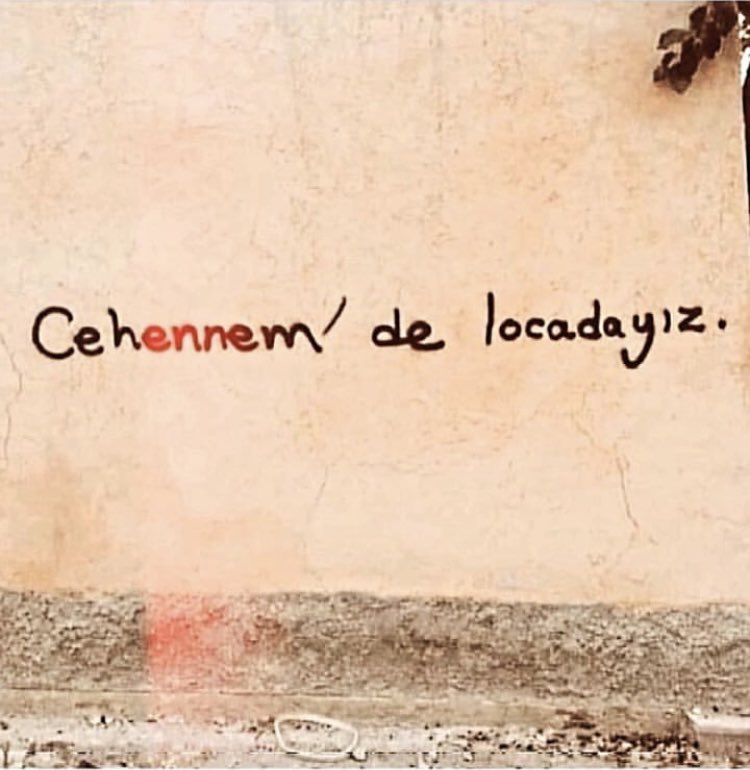 Cehennem' de locadayız.